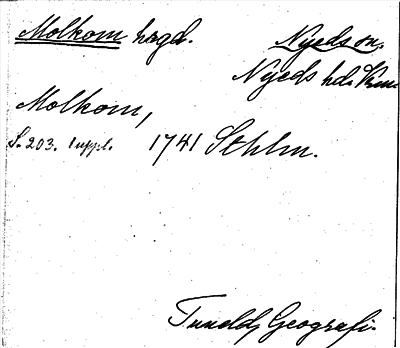 Molkom hzgd. Nyeds sn.
Nyeds hd. Vrm.
Molkom,
S. 203. suppl. 1741 Sthlm.
Tunelds Geografi.